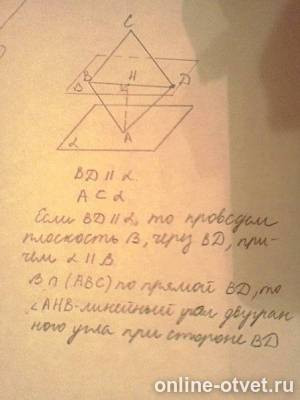 C
B
H
D
β
A
α
BD || α
A ⊂ α
Если BD || α, то проведем
плоскость β, через BD, при-
чем α || β
β ∩ (ABC) по прямой BD, то
∠AHB - линейный угол двугран
ного угла при стороне BD
online-otvet.ru